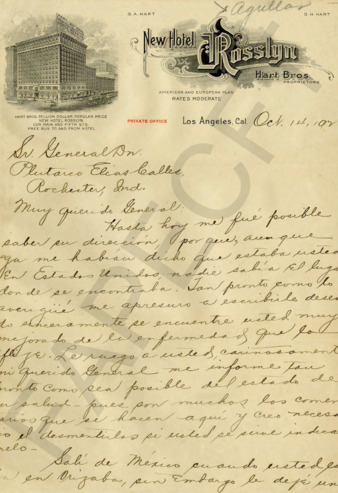 G. A. HART
D. H. HART
Aguillar
New Hotel Rosslyn
Hart Bros.
PROPRIETORS
AMERICAN AND EUROPEAN PLAN
RATES MODERATE
HART BROS. MILLION DOLLAR POPULAR PRICE
NEW HOTEL ROSSLYN
COR. MAIN AND FIFTH STS.
FREE BUS TO AND FROM HOTEL
PRIVATE OFFICE
Los Angeles, Cal. Oct. 1st, 192
Sr General Dn.
Plutarco Elias Calles.
Rochester, Ind.
Muy querido General:
Hasta hoy me fué posible
saber su dirección, porque, aunque
ya me habian dicho que estaba usted
en Estados Unidos, nadie sabia el luga
donde se encontraba. Tan pronto como lo
averigüé me apresuro a escribirle desea
do sinceramente se encuentre usted muy
mejorado de la enfermedad que lo
aflije. Le ruego a usted, cariñosament
mi querido General me informe tan
pronto como sea posible del estado de
su salud - pues son muchos los comen
tarios que se hacen aqui y creo necesa
rio el desmentirlos si usted se sirve indica
melo-
Sali de Mexico cuando usted es
en Orizaba, sin embargo le dejé un